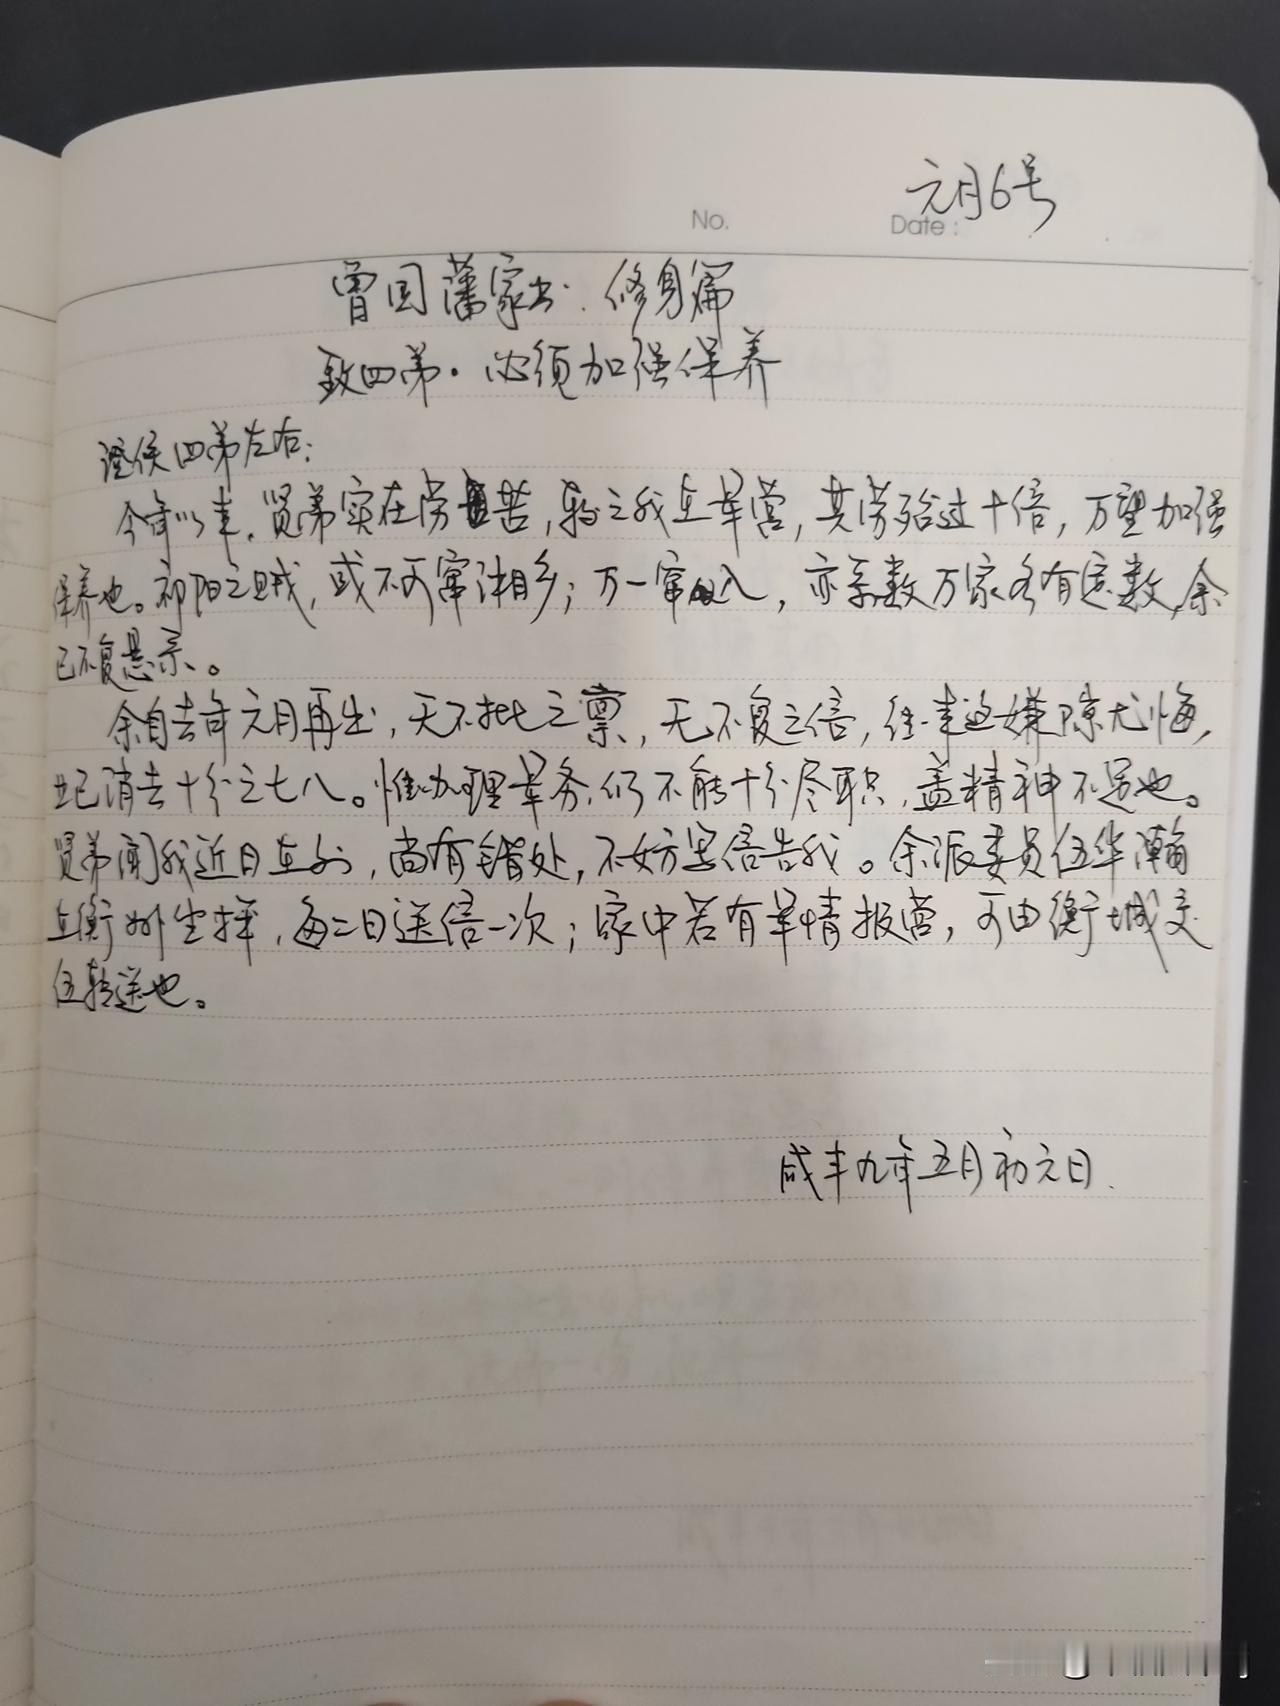 元月6号
No. Date:
曾国藩家书·修身篇
致四弟·必须加强保养
澄侯四弟左右:
今年以来,贤弟实在劳苦,较之我在军营,其劳殆过十倍,万望加强
保养也。祁阳之贼,或不可窜湘乡;万一窜入,亦系数万家各有定数,余
已不复悬系。
余自去年六月再出,无不批之禀,无不复之信,往来之嫌隙尤悔,
业已消去十分之七八。惟办理军务,仍不能十分尽职,盖精神不足也。
贤弟闻我近日在外,尚有错处,不妨写信告我。余派委员伍华瀚
在衡州坐探,每二日送信一次;家中若有军情报营,可由衡城交
伍转送也。
咸丰九年五月初六日.